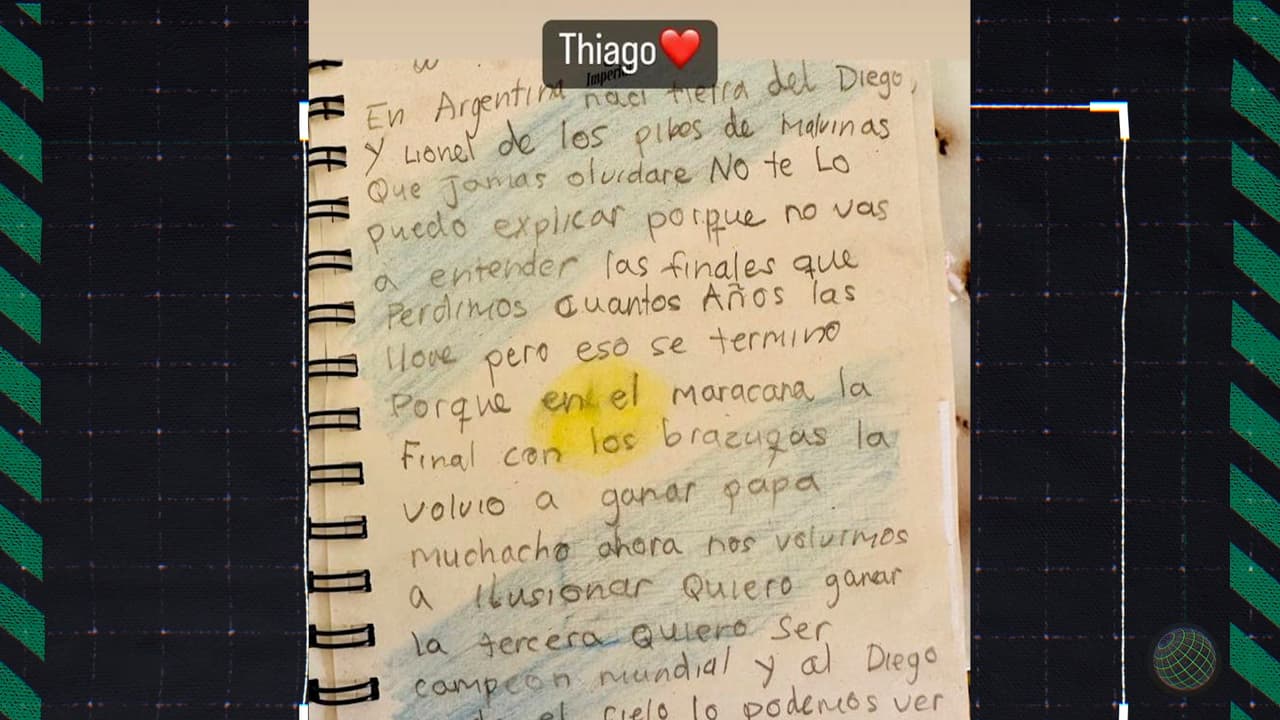 Thiago❤️
En Argentina naci tierra del Diego,
y Lionel de los pibes de Malvinas
Que jamas olvidare No te Lo
puedo explicar porque no vas
a entender las finales que
Perdimos cuantos Años las
llore pero eso se termino
Porque en el maracana la
Final con los brazugas la
volvio a ganar papa
muchacho ahora nos volvimos
a ilusionar Quiero ganar
la tercera Quiero Ser
campeon mundial y al Diego
el cielo lo podemos ver